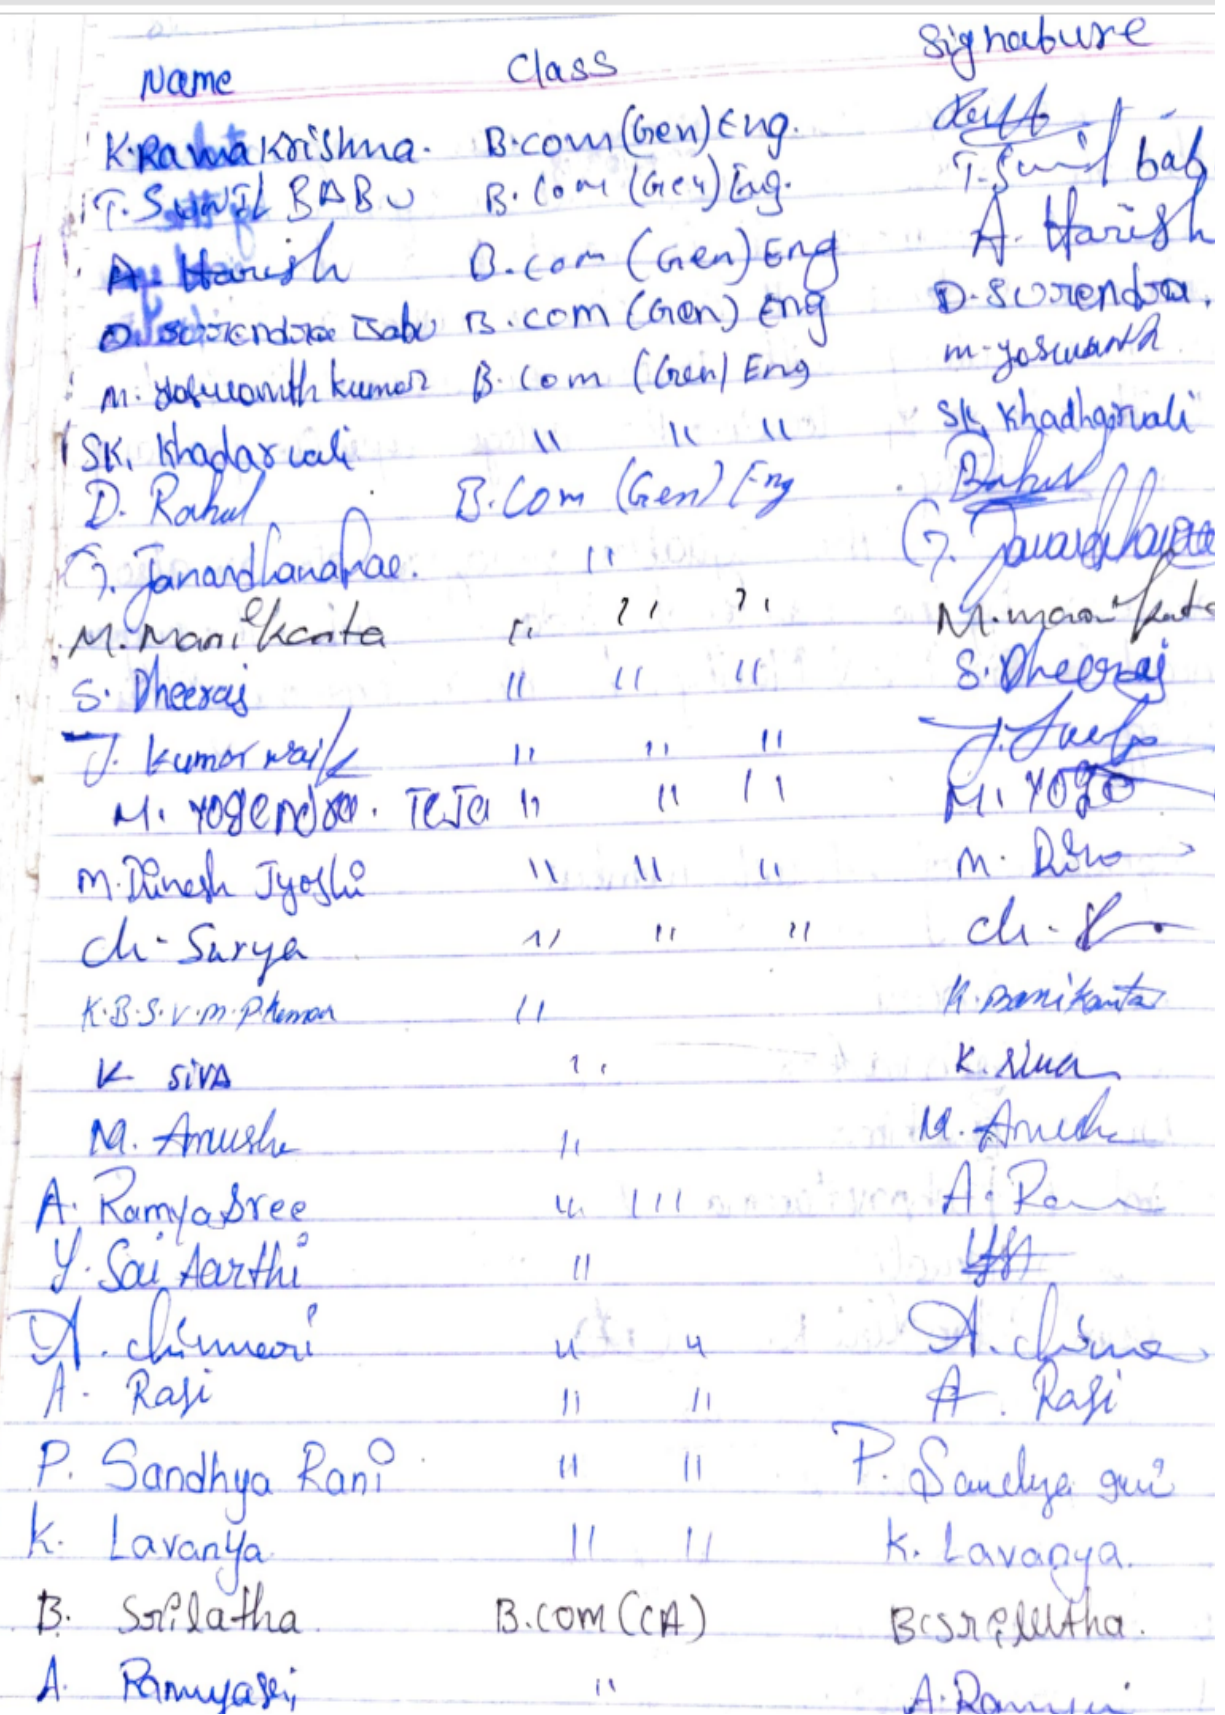 Name Class Signature
K. Rama Krishna. B.com (Gen) Eng.
T. SUNIL BABU B. Com (Gen) Eng. T. Sunil bab
A. Harish B.com (Gen) Eng A. Harish
D. Surendra Babu B.com (Gen) Eng D. Surendra.
M. Yaswanth kumar B. Com (Gen) Eng m. yaswanth
SK. Khadarvali " " " SK. Khadharvali
D. Rahul B.Com (Gen) Eng
G. Janardhanarao. " G.
M. Manikanta " " " M. manikanta
S. Dheeraj " " " S. Dheeraj
J. kumar naik " " " J.
M. Yogendra. TeJa " " " M. Yoga
M. Dinesh Jyoshi " " " M.
ch- Surya " " " ch-
K.B.S.V.M.P. kumar " K. manikanta
K SIVA " K. Siva
M. Anusha " M. Anusha
A. Ramya Sree " " A. Ram
Y. Sai Aarthi "
A. chinnari " " A. chinna
A. Rasi " " A. Rasi
P. Sandhya Rani " " P. Sandhya
K. Lavanya " " K. Lavanya.
B. Srilatha B.com (CA) B. Srilatha.
A. Ramyasri " A.